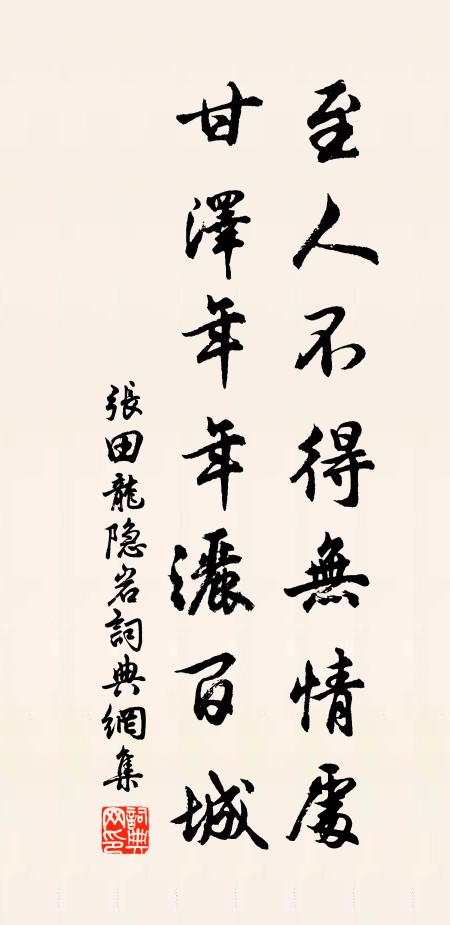 至人不得無情處
甘澤年年灑百城
張田龍隐岩詞典網集
詞典网印